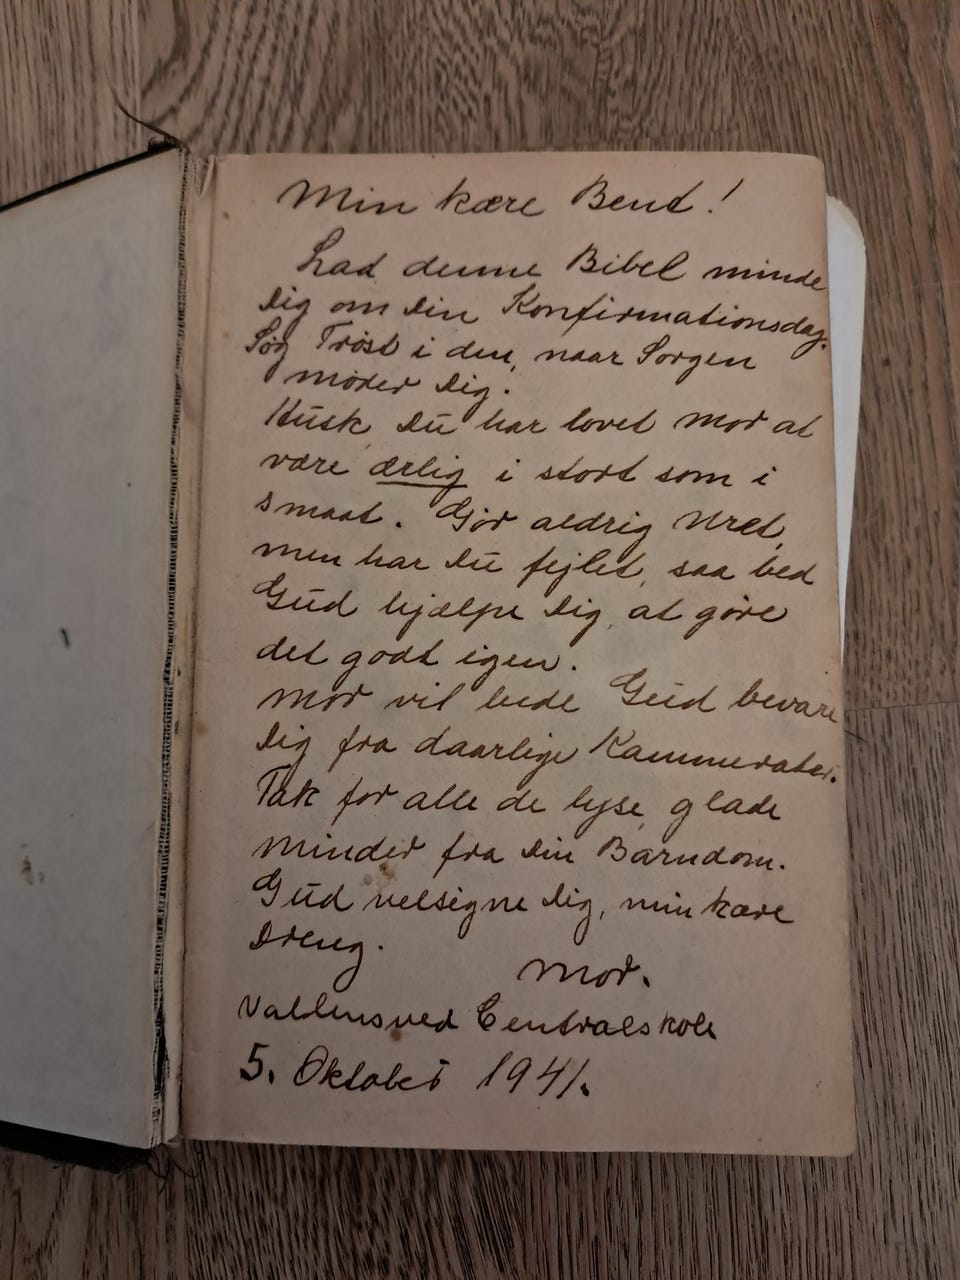 Min kære Bent!
Lad denne Bibel minde
Dig om Din Konfirmationsdag.
Søg Trøst i den, naar Sorgen
møder Dig.
Husk, Du har lovet Mor at
være ærlig i stort som i
smaat. Gør aldrig Uret,
men har Du fejlet, saa bed
Gud hjælpe Dig, at gøre
det godt igen.
Mor vil bede Gud bevare
Dig fra daarlige Kammerater.
Tak for alle de lyse, glade
Minder fra Din Barndom.
Gud velsigne Dig, min kære
Dreng.
Mor.
Vallensved Centralskole
5. Oktober 1941.